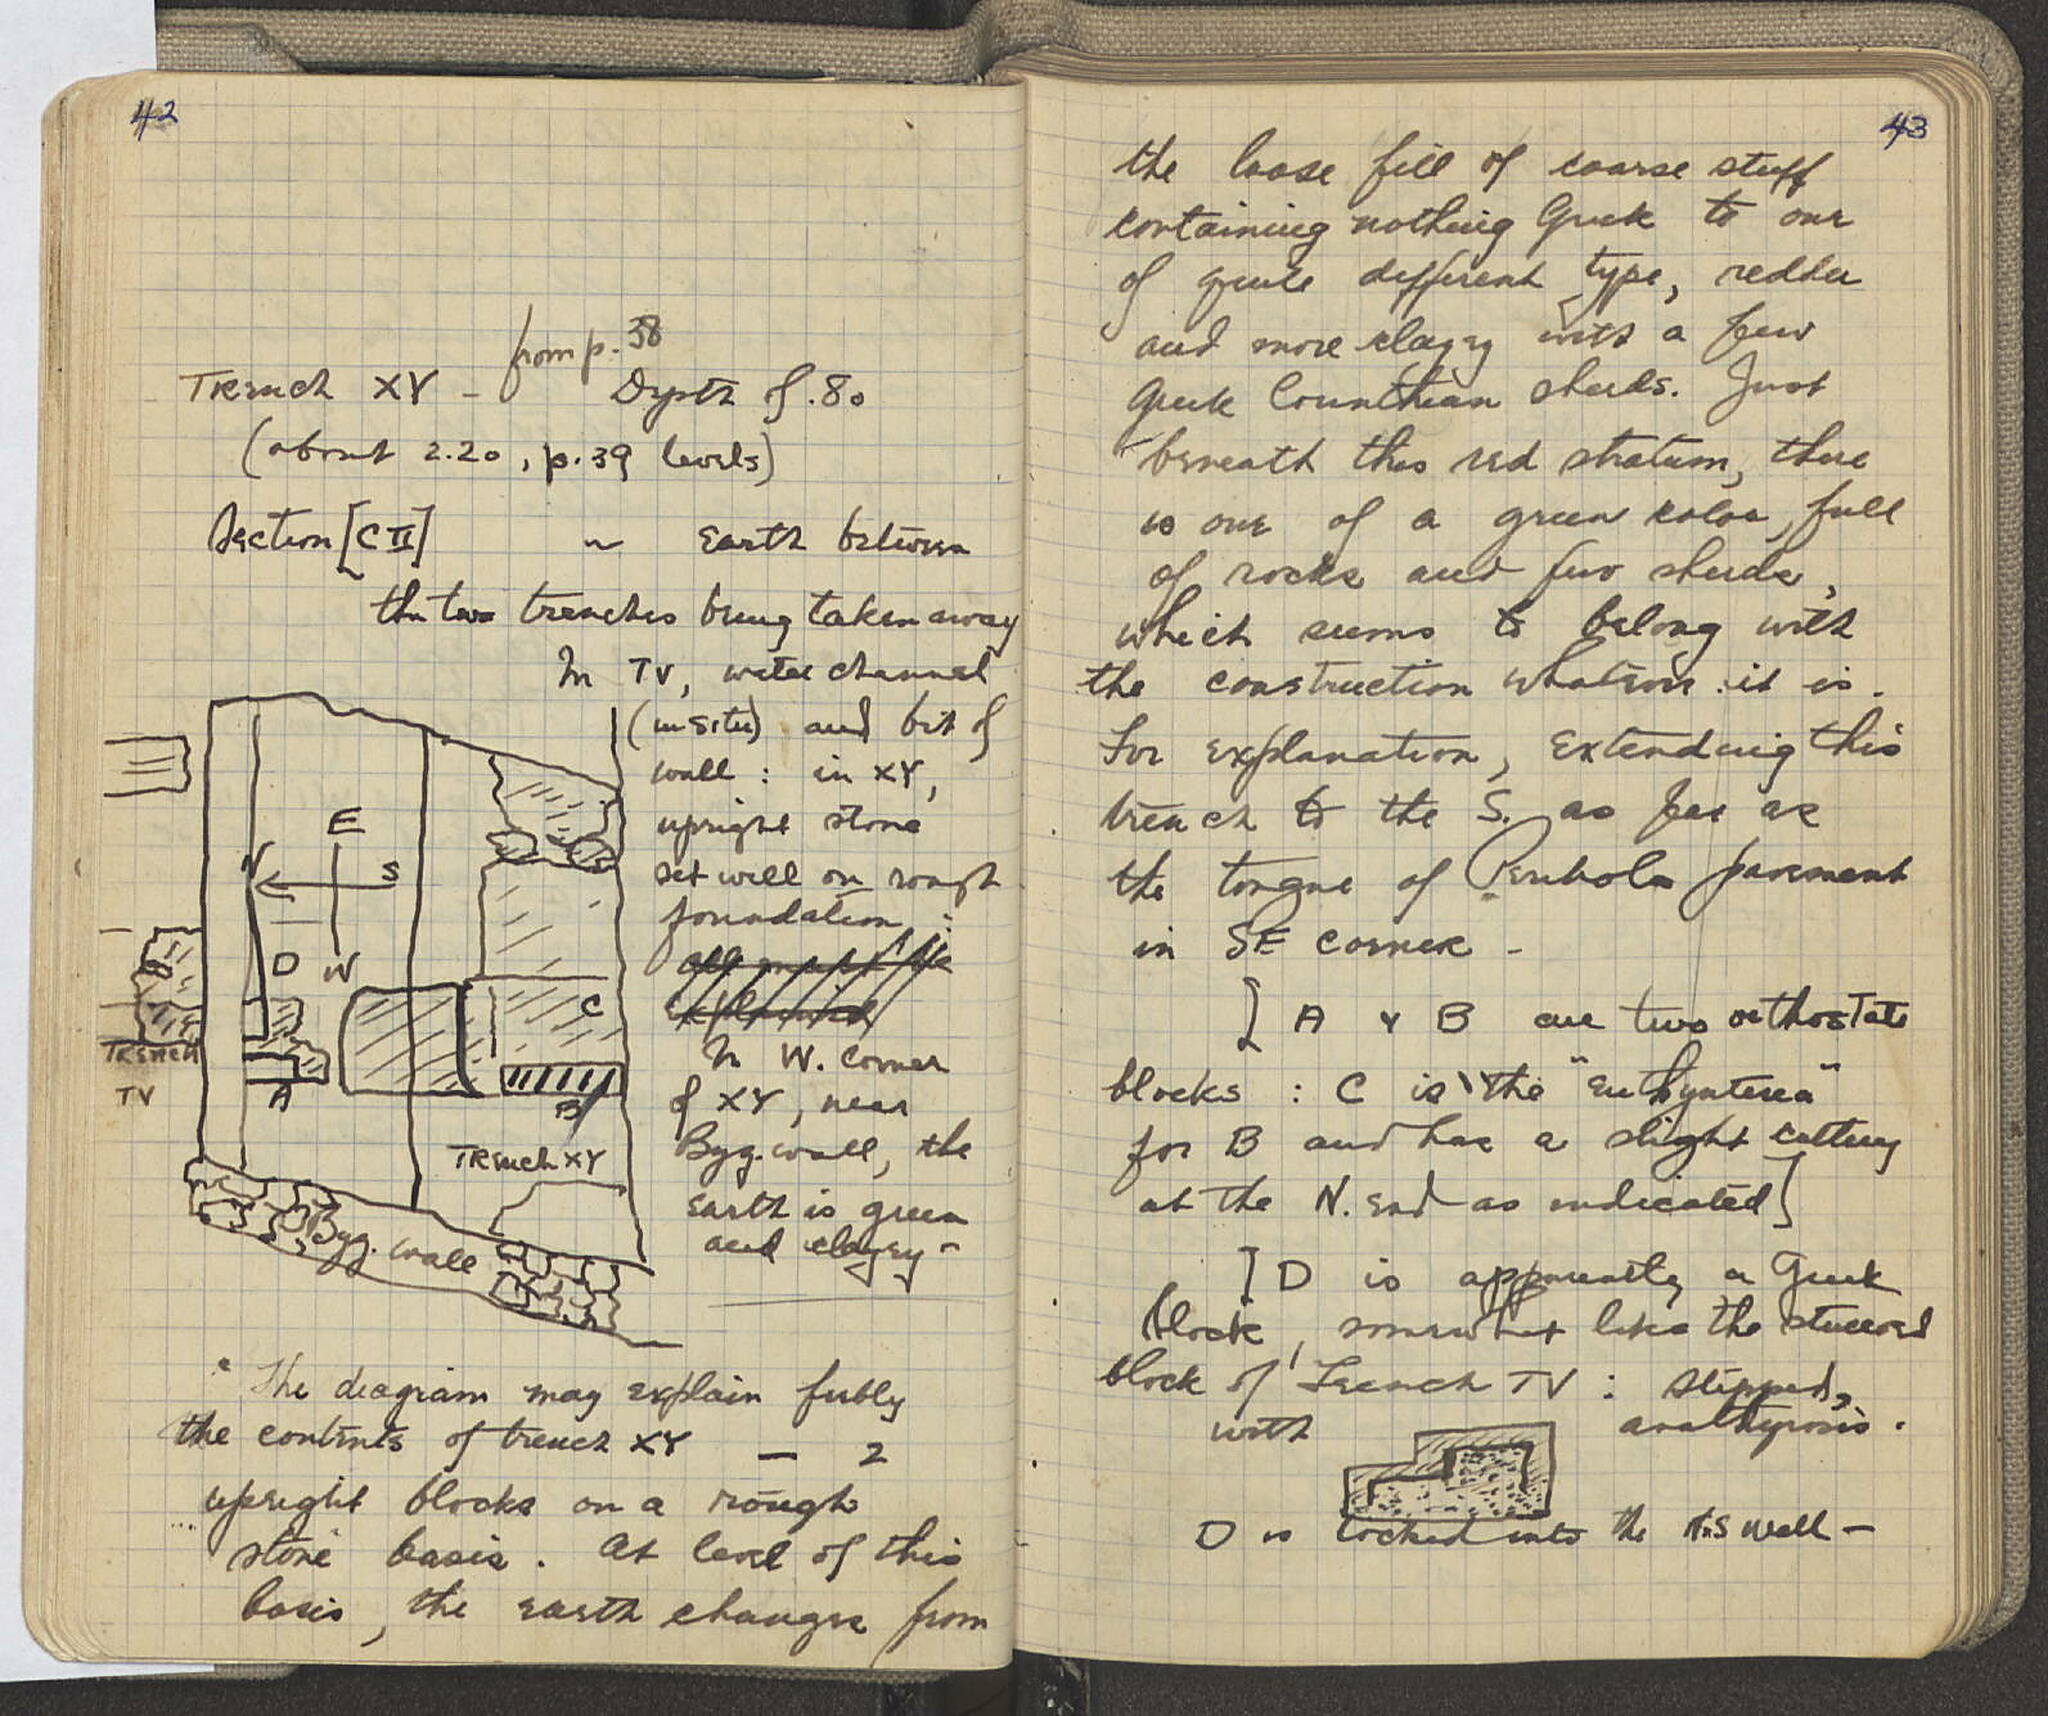 42
from p. 38
Trench XY - Depth of .80
(about 2.20, p.39 levels)
Section [C II] ~ Earth between
the two trenches being taken away
In TV, water channel
(in situ) and bit of
wall : in XY,
upright stone
set well on rough
foundation :
In W. corner
of XY, near
Byz. wall, the
earth is green
and clayey -
E
N
S
W
D
A
C
B
Trench
TV
Trench XY
Byz. wall
The diagram may explain feebly
the contents of trench XY — 2
upright blocks on a rough
stone basis. At level of this
basis, the earth changes from
43
the loose fill of coarse stuff
containing nothing Greek to one
of quite different type, redder
and more clayey with a few
Greek Corinthian sherds. Just
beneath this red stratum, there
is one of a green color, full
of rocks and few sherds,
which seems to belong with
the construction whatever it is.
For explanation, extending this
trench to the S. as far as
the tongue of Peribolos pavement
in SE corner -
[ A & B are two orthostate
blocks : C is the "euthynteria"
for B and has a slight cutting
at the N. end as indicated]
[D is apparently a Greek
block, somewhat like the stuccoed
block of Trench TV : stepped,
with anathyrosis.
D is locked into the N-S wall —